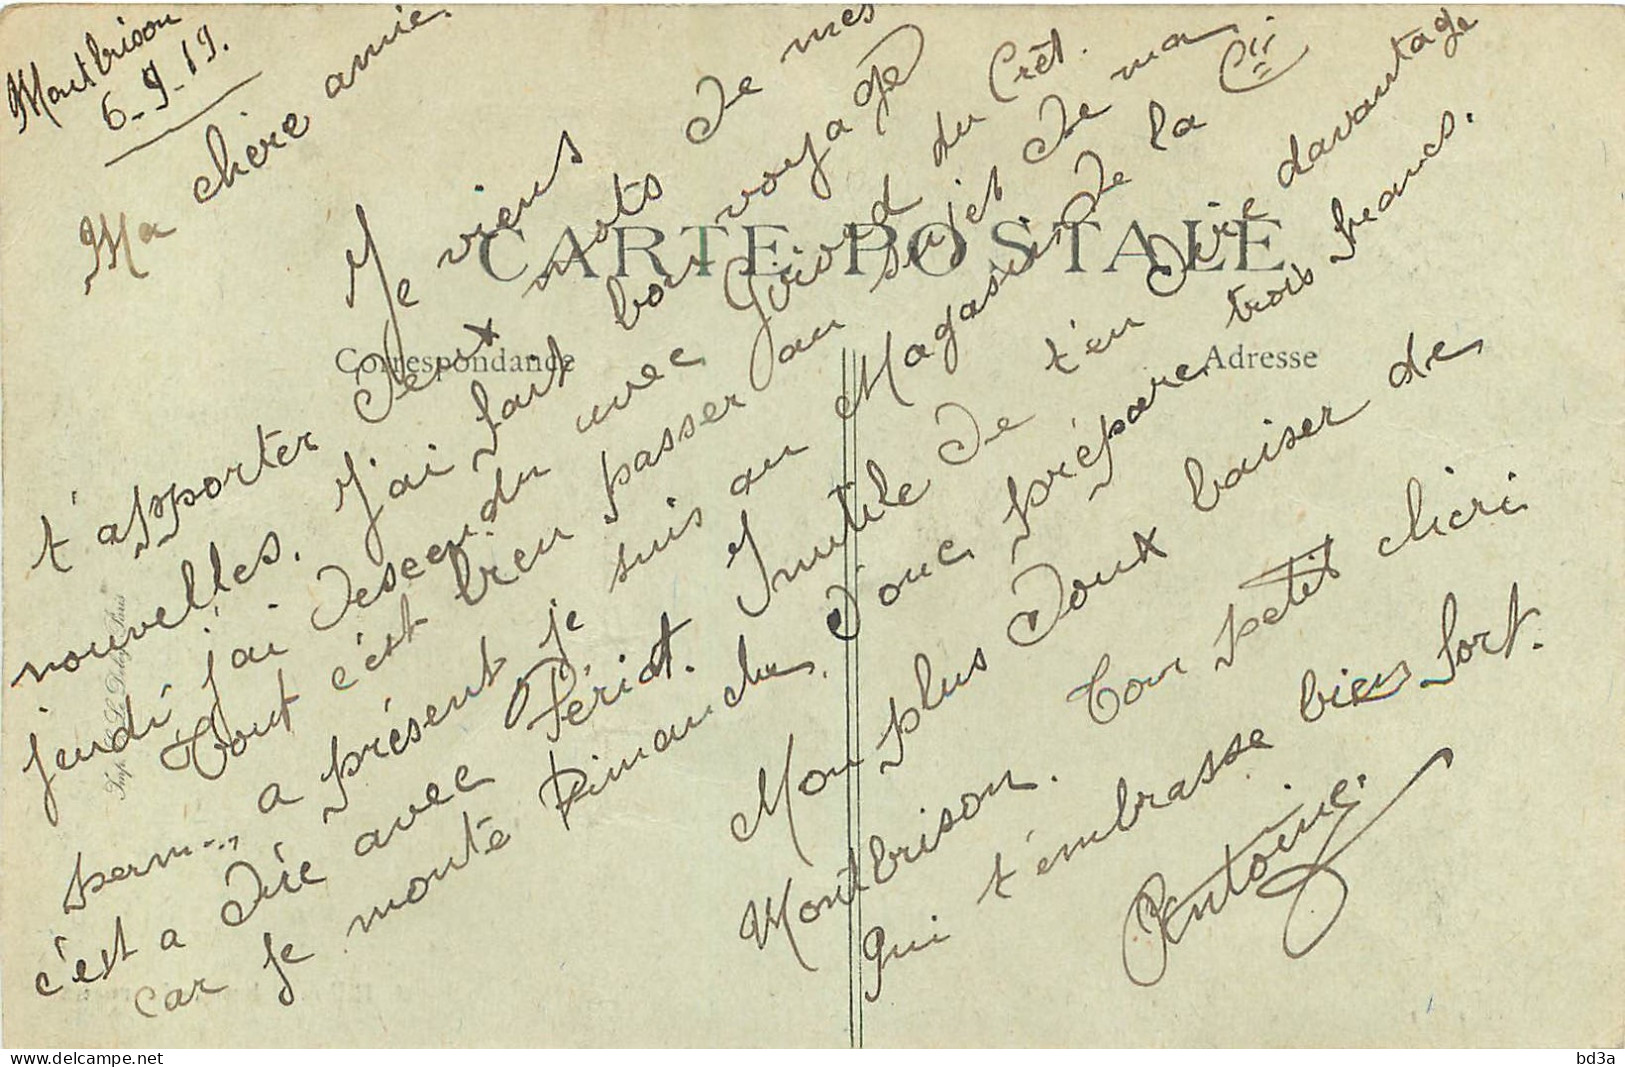 Montbrison
6-9-19.
Ma chère amie.
Je viens
t'apporter deux mots de mes
nouvelles. J'ai fait bon voyage
jeudi j'ai descendu avec Girard du Crêt.
Tout c'est bien passer au sujet de ma
perm..., a présent je suis au Magasin de la Cie
c'est a dire avec Périot. Inutile de t'en dire davantage
car je monte Dimanche, donc prépare trois francs.
Mon plus doux baiser de
Montbrison. Ton petit chéri
qui t'embrasse bien fort.
Antoine.
CARTE POSTALE
Correspondance
Adresse
bd3a
© delcampe.net